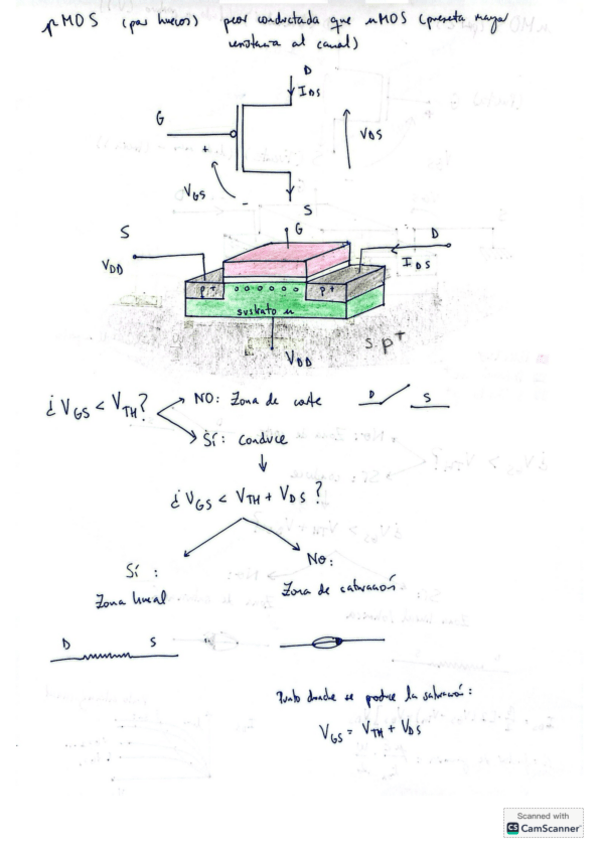 pMOS (por huecos) peor conductada que nMOS (presenta mayor
resistencia al canal)
D
I DS
G
VDS
+
VGS
-
S
G
S
D
VDD
I DS
p+ p+
sustrato n
S p+
VDD
¿VGS < VTH?
NO: Zona de corte
D S
SÍ: conduce
¿VGS < VTH + VDS?
Sí:
No:
Zona lineal
Zona de saturación
D S
Punto donde se produce la saturación:
VGS = VTH + VDS
Scanned with
CS CamScanner